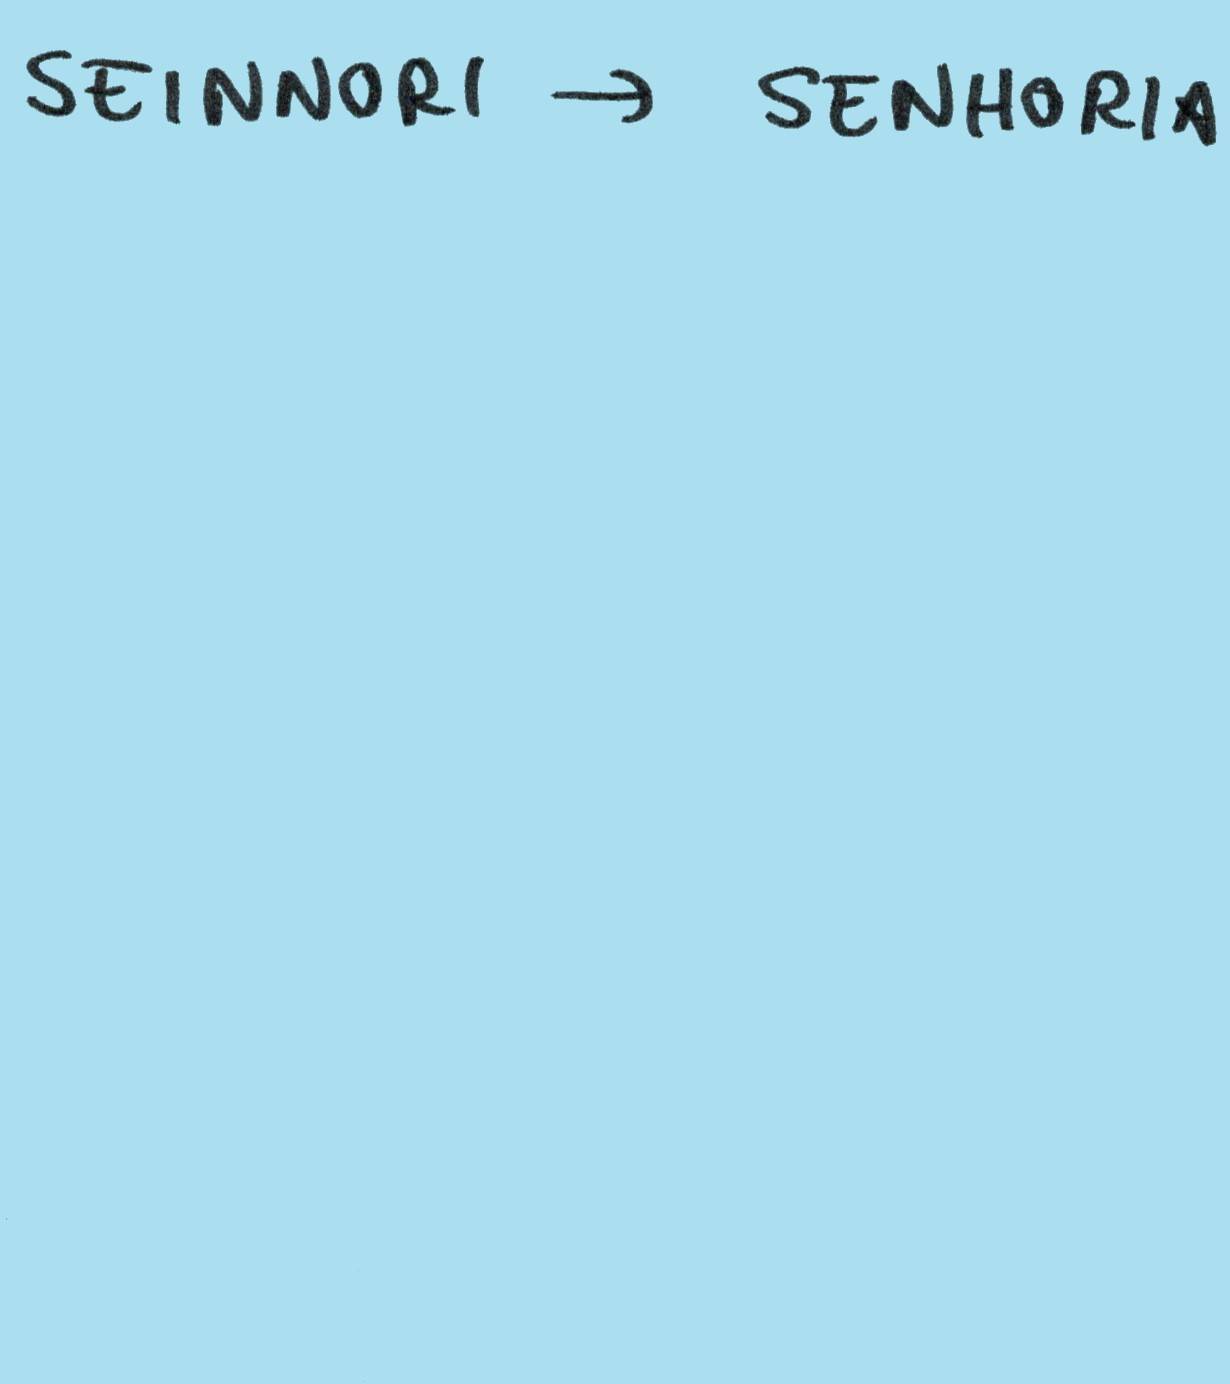 SEINNORI → SENHORIA